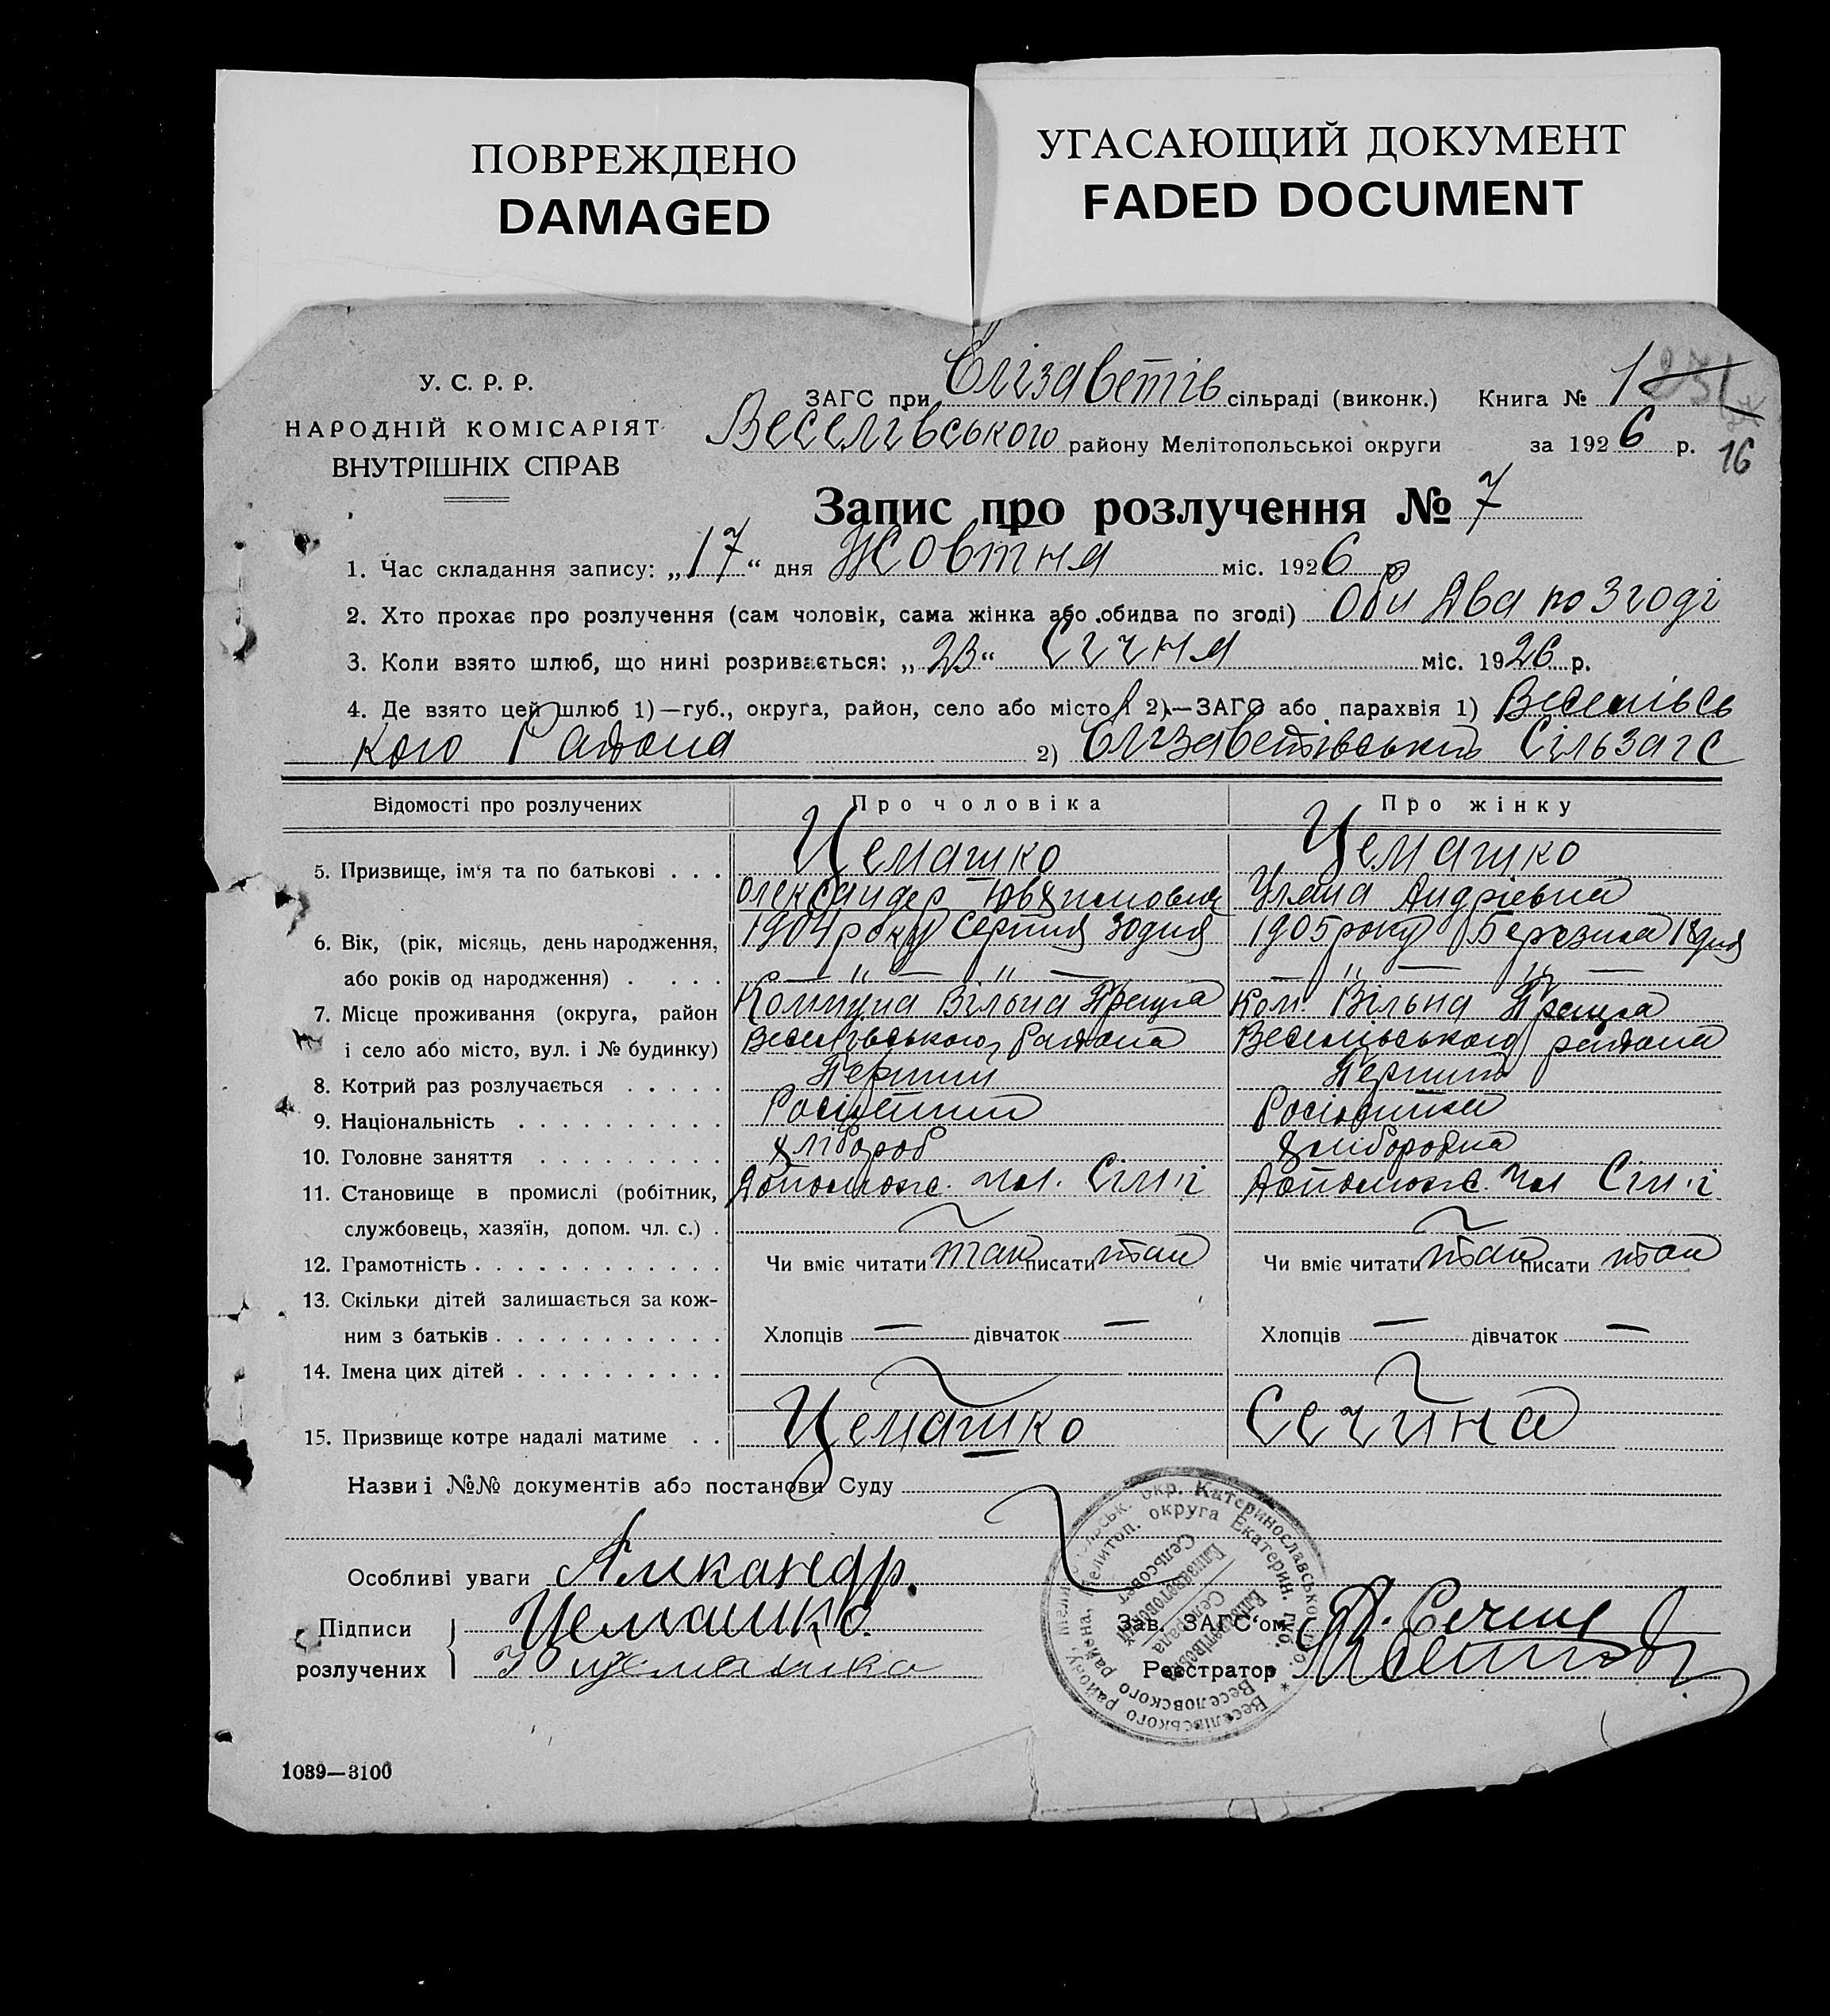 ПОВРЕЖДЕНО
DAMAGED
УГАСАЮЩИЙ ДОКУМЕНТ
FADED DOCUMENT
У. С. Р. Р.
НАРОДНІЙ КОМІСАРІЯТ
ВНУТРІШНІХ СПРАВ
ЗАГС при Єлізаветів сільраді (виконк.) Книга № 1
Веселівського району Мелітопольської округи за 1926 р.
16
Запис про розлучення № 7
1. Час складання запису: „17“ дня Жовтня міс. 1926 р.
2. Хто прохає про розлучення (сам чоловік, сама жінка або обидва по згоді) Оби два по згоді
3. Коли взято шлюб, що нині розривається: „23“ Січня міс. 1926 р.
4. Де взято цей шлюб 1)—губ., округа, район, село або місто і 2)—ЗАГС або парахвія 1) Веселівсь
кого Района 2) Єлізаветівський Сільзагс
Відомості про розлучених Про чоловіка Про жінку
5. Призвище, ім‘я та по батькові . . . Цемашко Цемашко
Олександер Уляна Андрієвна
6. Вік, (рік, місяць, день народження, 1904 року Серпня 30 дня 1905 року Березня 18 дня
або років од народження) . . . . — " — " — — " — " —
7. Місце проживання (округа, район Коммуна Вільна Праця Ком. Вільна Праця
і село або місто, вул. і № будинку) Веселівського Района Веселівського района
8. Котрий раз розлучається . . . . . Перший Перший
9. Національність . . . . . . . . . .
10. Головне заняття . . . . . . . . . хлібороб хлібородка
11. Становище в промислі (робітник, Допомож. чл. Сім'ї Допомож. чл Сім'ї
службовець, хазяїн, допом. чл. с.) .
12. Грамотність . . . . . . . . . . . . Чи вміє читати так писати так Чи вміє читати так писати так
13. Скільки дітей залишається за кож-
ним з батьків . . . . . . . . . . . Хлопців — дівчаток — Хлопців — дівчаток —
14. Імена цих дітей . . . . . . . . . .
15. Призвище котре надалі матиме . . Цемашко Сечина
Назви і №№ документів або постанови Суду
Особливі уваги Алкандр.
Підписи
розлучених
Цемашко.
Зав. ЗАГС‘ом
Реєстратор
Веселівського району, окр. Катеринославської
Веселовского района, Мелитоп. округа Екатерин. губ.
Елизаветовский
Сельсовет
Сельрада
1039—3100